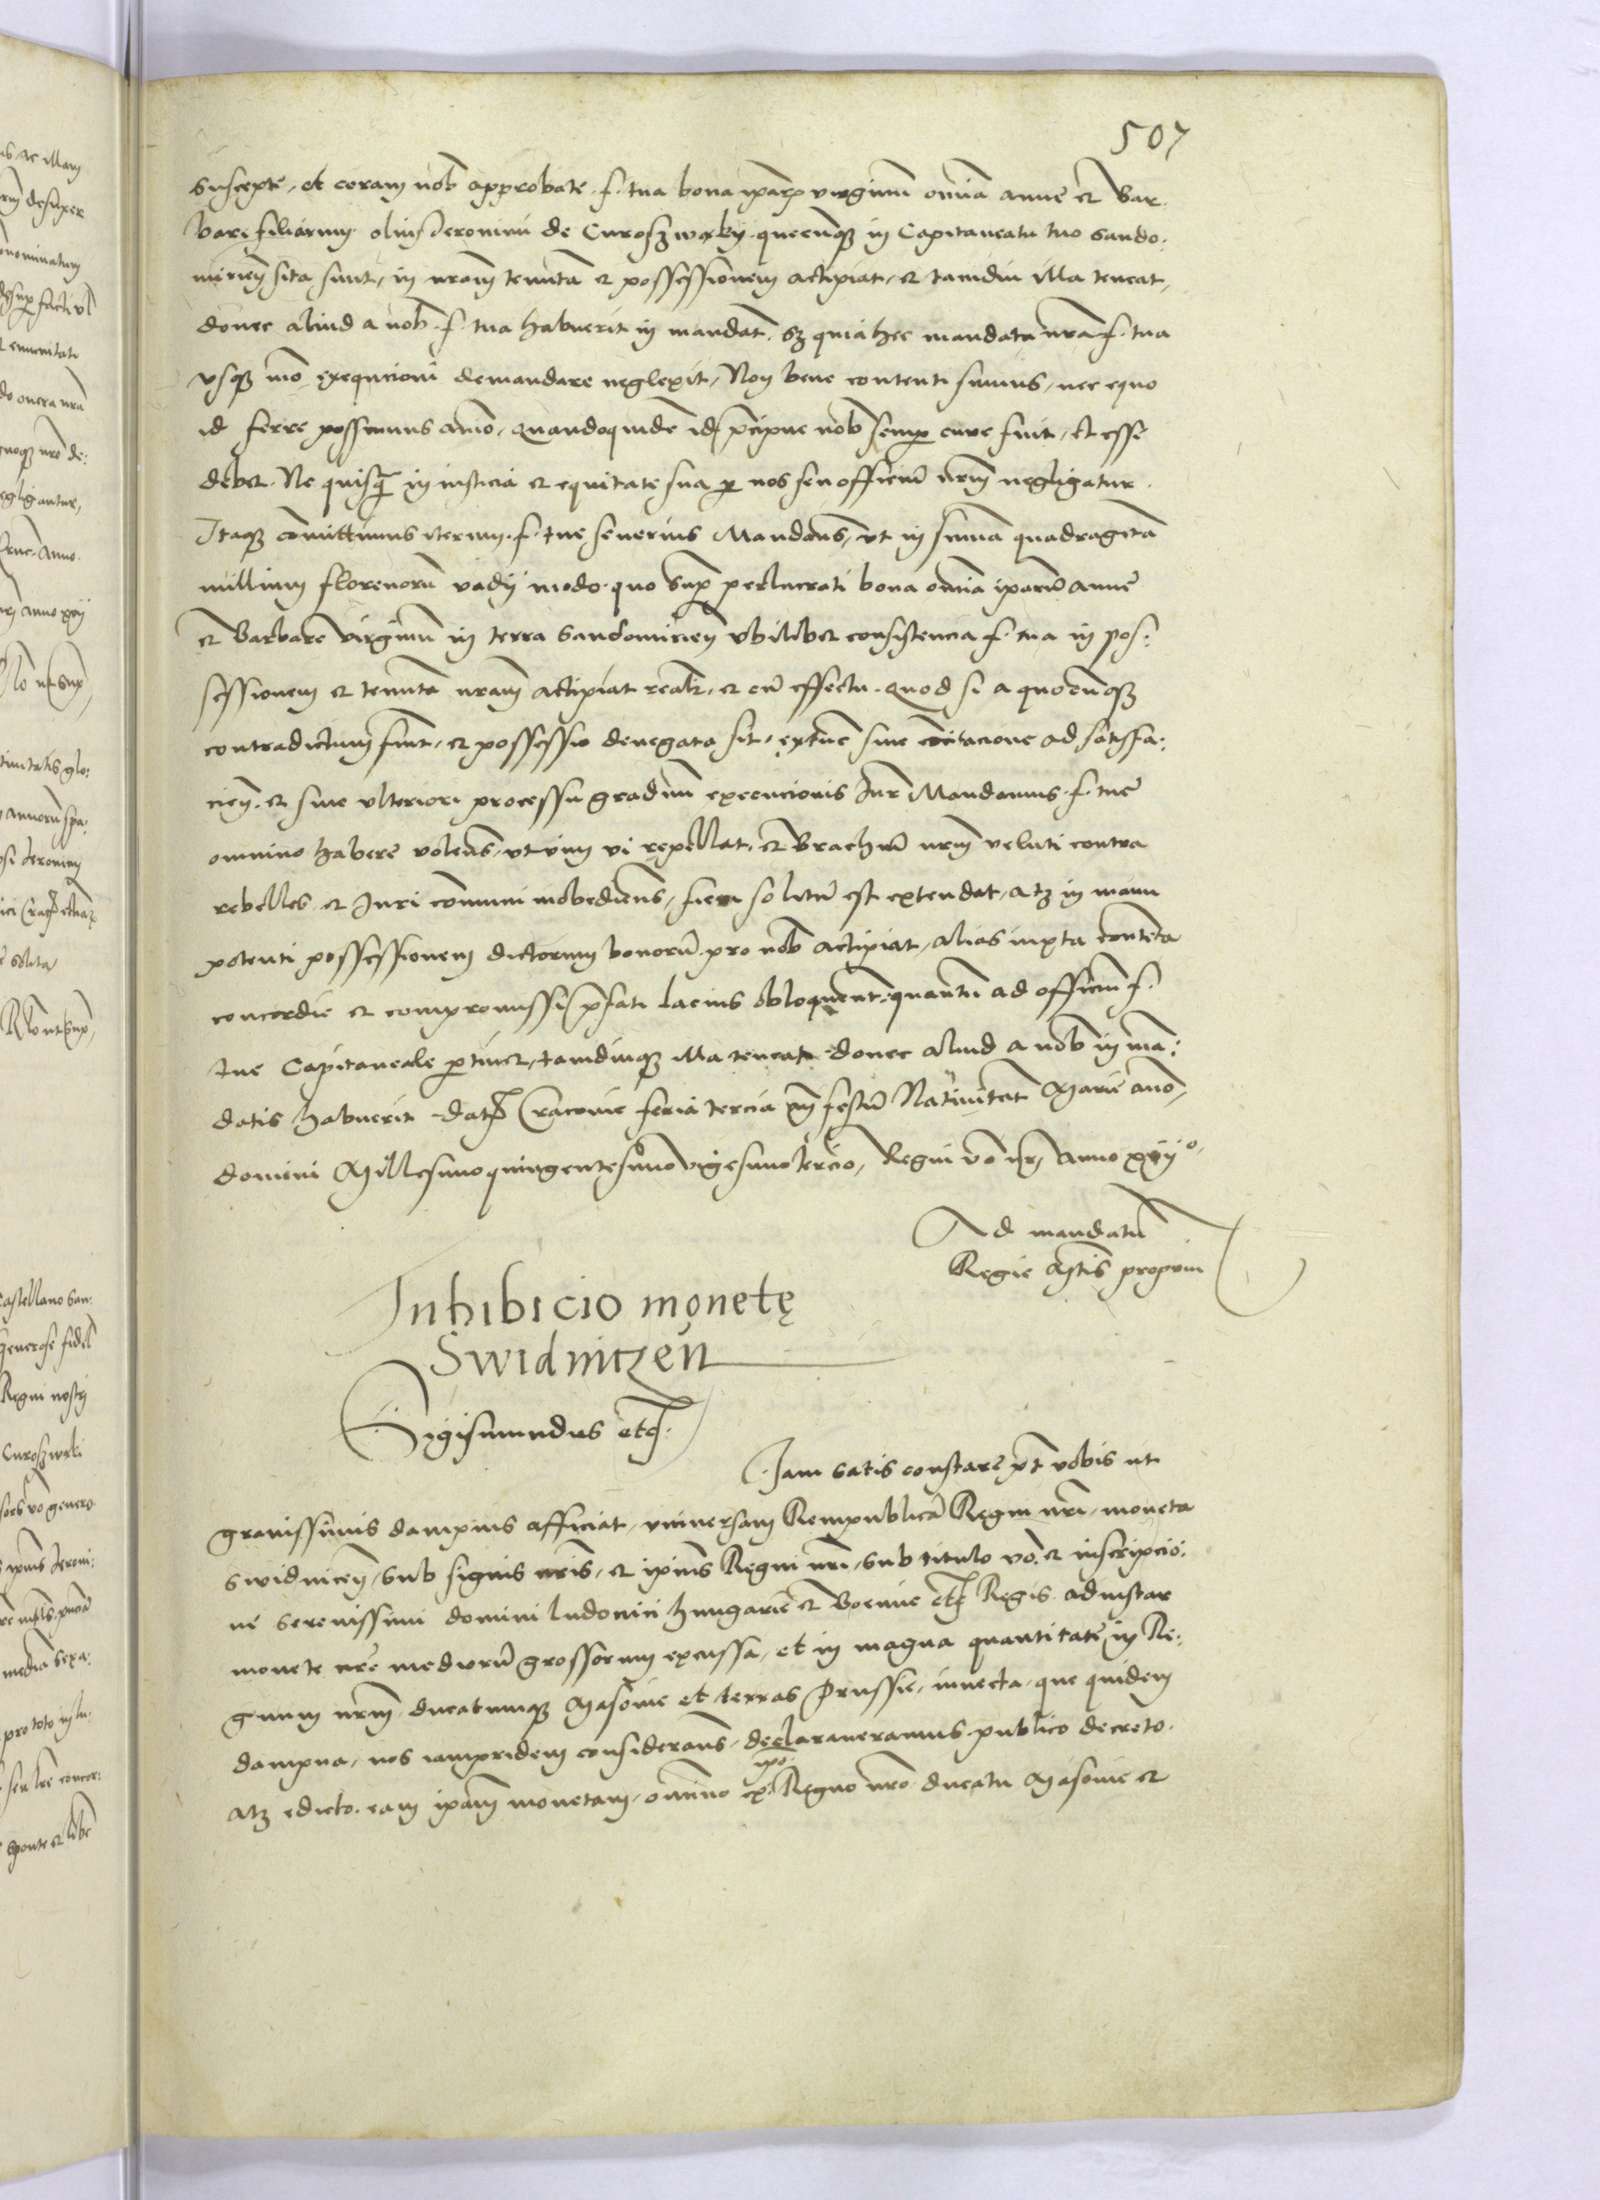 507
suscepte, et coram nob approbate. f. tua bona iparum virginum omnia anne et Bar
bare filiarum olim Jeronimi de Curoszwaky quecunque in Capitaneatu tuo Sando:
mirien sita sunt, in nram tenutam et possessionem accipiat, et tamdiu illa teneat,
donec aliud a nob. f. tua habuerit in mandat. Sz quia hec mandata nra f. tua
usque modo exequcioni demandare neglexit, Non bene contenti sumus, nec equo
id ferre possumus animo, quandoquidem id precipue nob semper cure fuit, et esse
debet. Ne quisquam in iusticia et equitate sua per nos seu officium nrum negligatur.
Itaque committimus iterum. f. tue severius Mandans, ut in summa quadraginta
millium florenorum vadii modo quo supra perlucrati bona omnia iparum anne
et Barbare virginum in terra Sandomirien ubilibet consistencia f. tua in pos:
sessionem et tenutam nram accipiat realr. et cum effectu. Quod si a quocunque
contradictum fuerit, et possessio denegata sit, extunc sine citacione ad satisfa:
cien. et sine ulteriori processu graduum execucionis Jur Mandamus f. tue
omnino habere volens, ut vim vi repellat, et Brachium nrum veluti contra
rebelles et Juri communi inobediens, fieri solitum est extendat, atque in manu
potenti possessionem dictorum bonorum pro nob accipiat, alias iuxta contenta
concordie et compromissi prefati lacius obloquent. quantum ad officium f.
tue Capitaneale pertinet, tamdiuque illa teneat donec aliud a nob in man:
datis habuerit. Dat Cracovie feria tercia in festum Nativitat Marie anno
domini Millesimoquingentesimo vigesimotercio, Regni vero nri Anno xvii°.
Ad mandatum
Regie Mtis proprium
Inhibicio monetę
Swidnitzen
Sigismundus etc.
Jam satis constare pt vobis ut
gravissimis dampnis afficiat, universam Rempublicam Regni nri, moneta
Swidnicen, sub signis nris, et ipius Regni nri, sub titulo vero et inscripcio:
ne Serenissimi domini ludovici hungarie et Boemie etc Regis ad instar
monete nre mediorum grossorum excussa, et in magna quantitate in Re:
gnum nrum ducatumque Masovie et terras Prussie, invecta, que quidem
dampna, nos iampridem considerans, declaraveramus publico decreto
ipo
atque edicto. eam ipam monetam, omnino ex Regno nro ducatu Masovie et